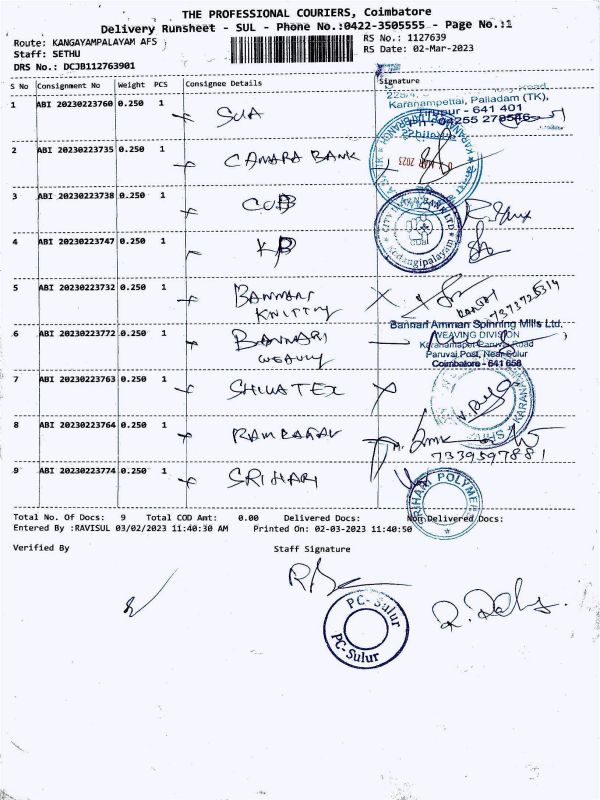 THE PROFESSIONAL COURIERS, Coimbatore
Delivery Runsheet - SUL - Phone No.:0422-3505555 - Page No.:1
Route: KANGAYAMPALAYAM AFS
RS No.: 1127639
Staff: SETHU
RS Date: 02-Mar-2023
DRS No.: DCJB112763901
S No Consignment No Weight PCS Consignee Details Signature
Karanampettai, Palladam (TK),
641 401
1 ABI 20230223760 0.250 1 SUA
2 ABI 20230223735 0.250 1 CANARA BANK
3 ABI 20230223738 0.250 1 CUB
4 ABI 20230223747 0.250 1 KB
Kadangipalayam
5 ABI 20230223732 0.250 1 BANNARI KNITTING
7373725314
6 ABI 20230223772 0.250 1 BANNARI WEAVING
Bannari Amman Spinning Mills Ltd.
WEAVING DIVISION
Karanampet-Paruvai Road
Paruvai Post, Near Sulur
Coimbatore - 641 658
7 ABI 20230223763 0.250 1 SHIVA TEX
8 ABI 20230223764 0.250 1
7339597881
9 ABI 20230223774 0.250 1 SRI HARI
SRIHARI POLYMERS
Total No. Of Docs: 9 Total COD Amt: 0.00 Delivered Docs: Non Delivered Docs:
Entered By :RAVISUL 03/02/2023 11:40:30 AM Printed On: 02-03-2023 11:40:50
Verified By Staff Signature
PC-Sulur
PC-Sulur